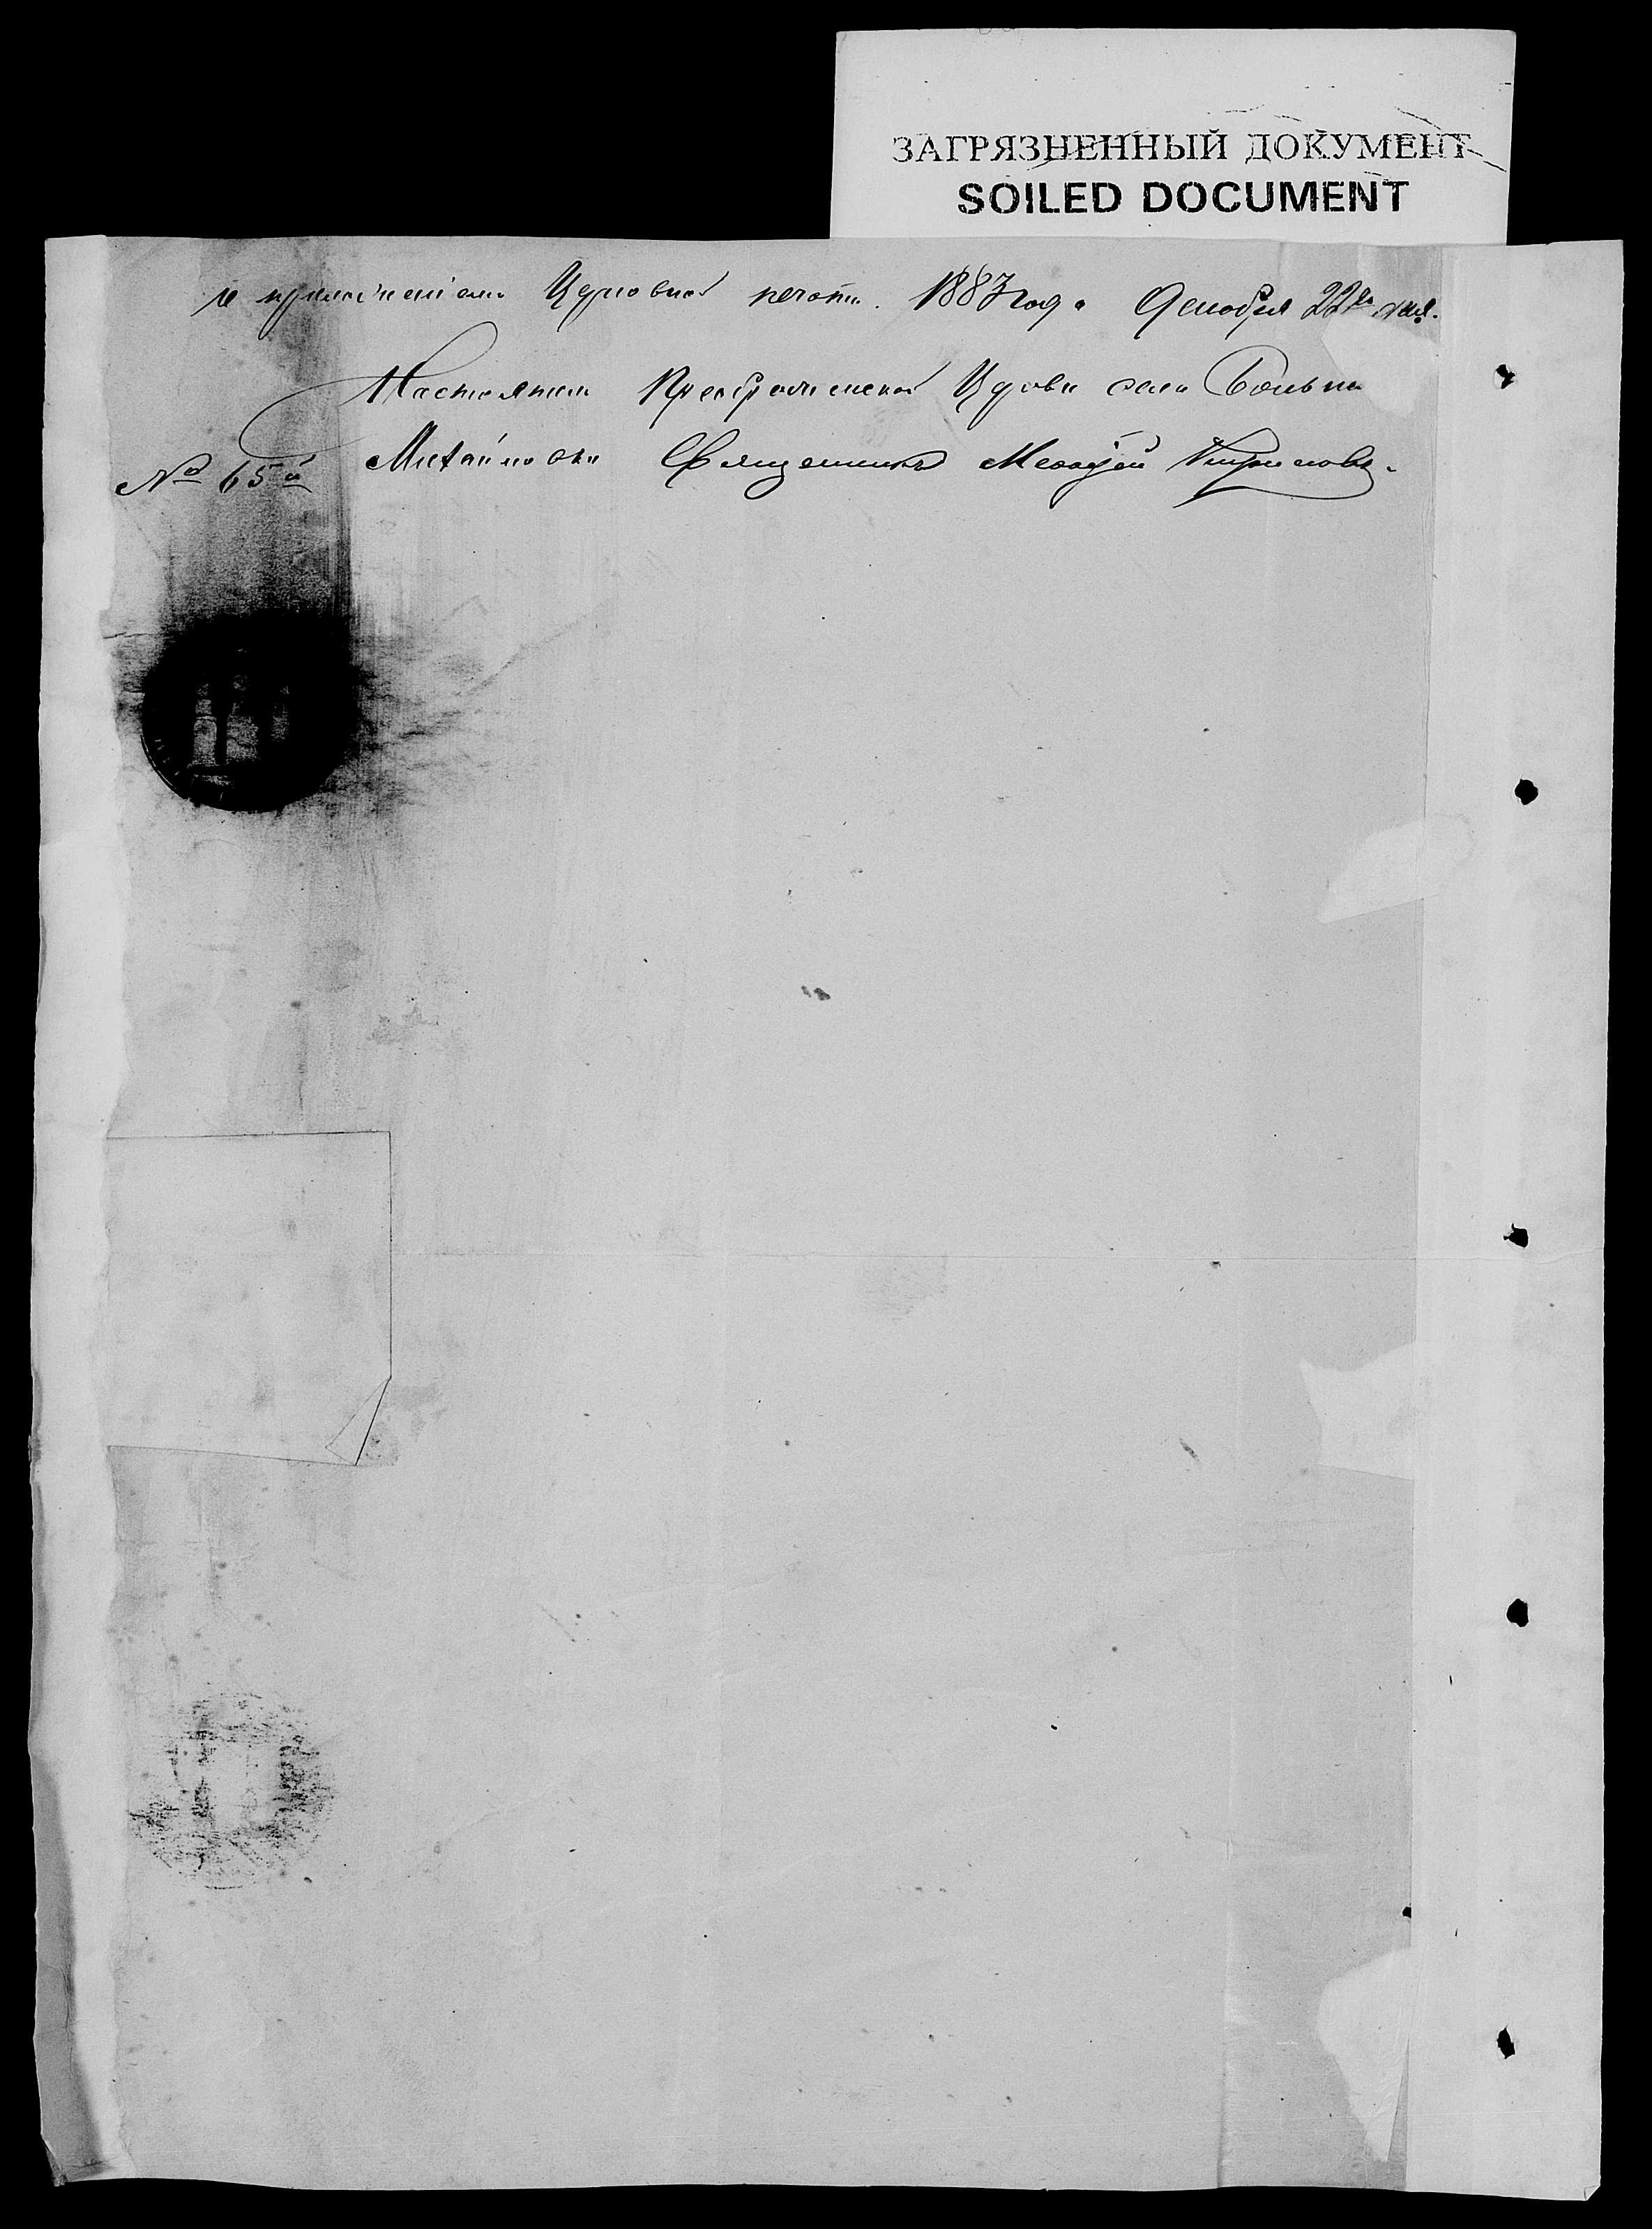 ЗАГРЯЗНЕННЫЙ ДОКУМЕНТ
SOILED DOCUMENT
и приложеніемъ Церковной печати. 1883 года Декабря 22го дня.
Настоятель Преображенской Церкви села
№ 65й Михайловки Священникъ